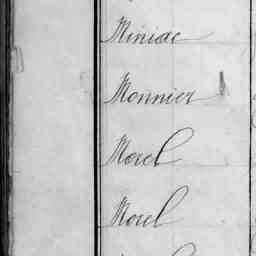 Miniac
Monnier
Morel
Morel